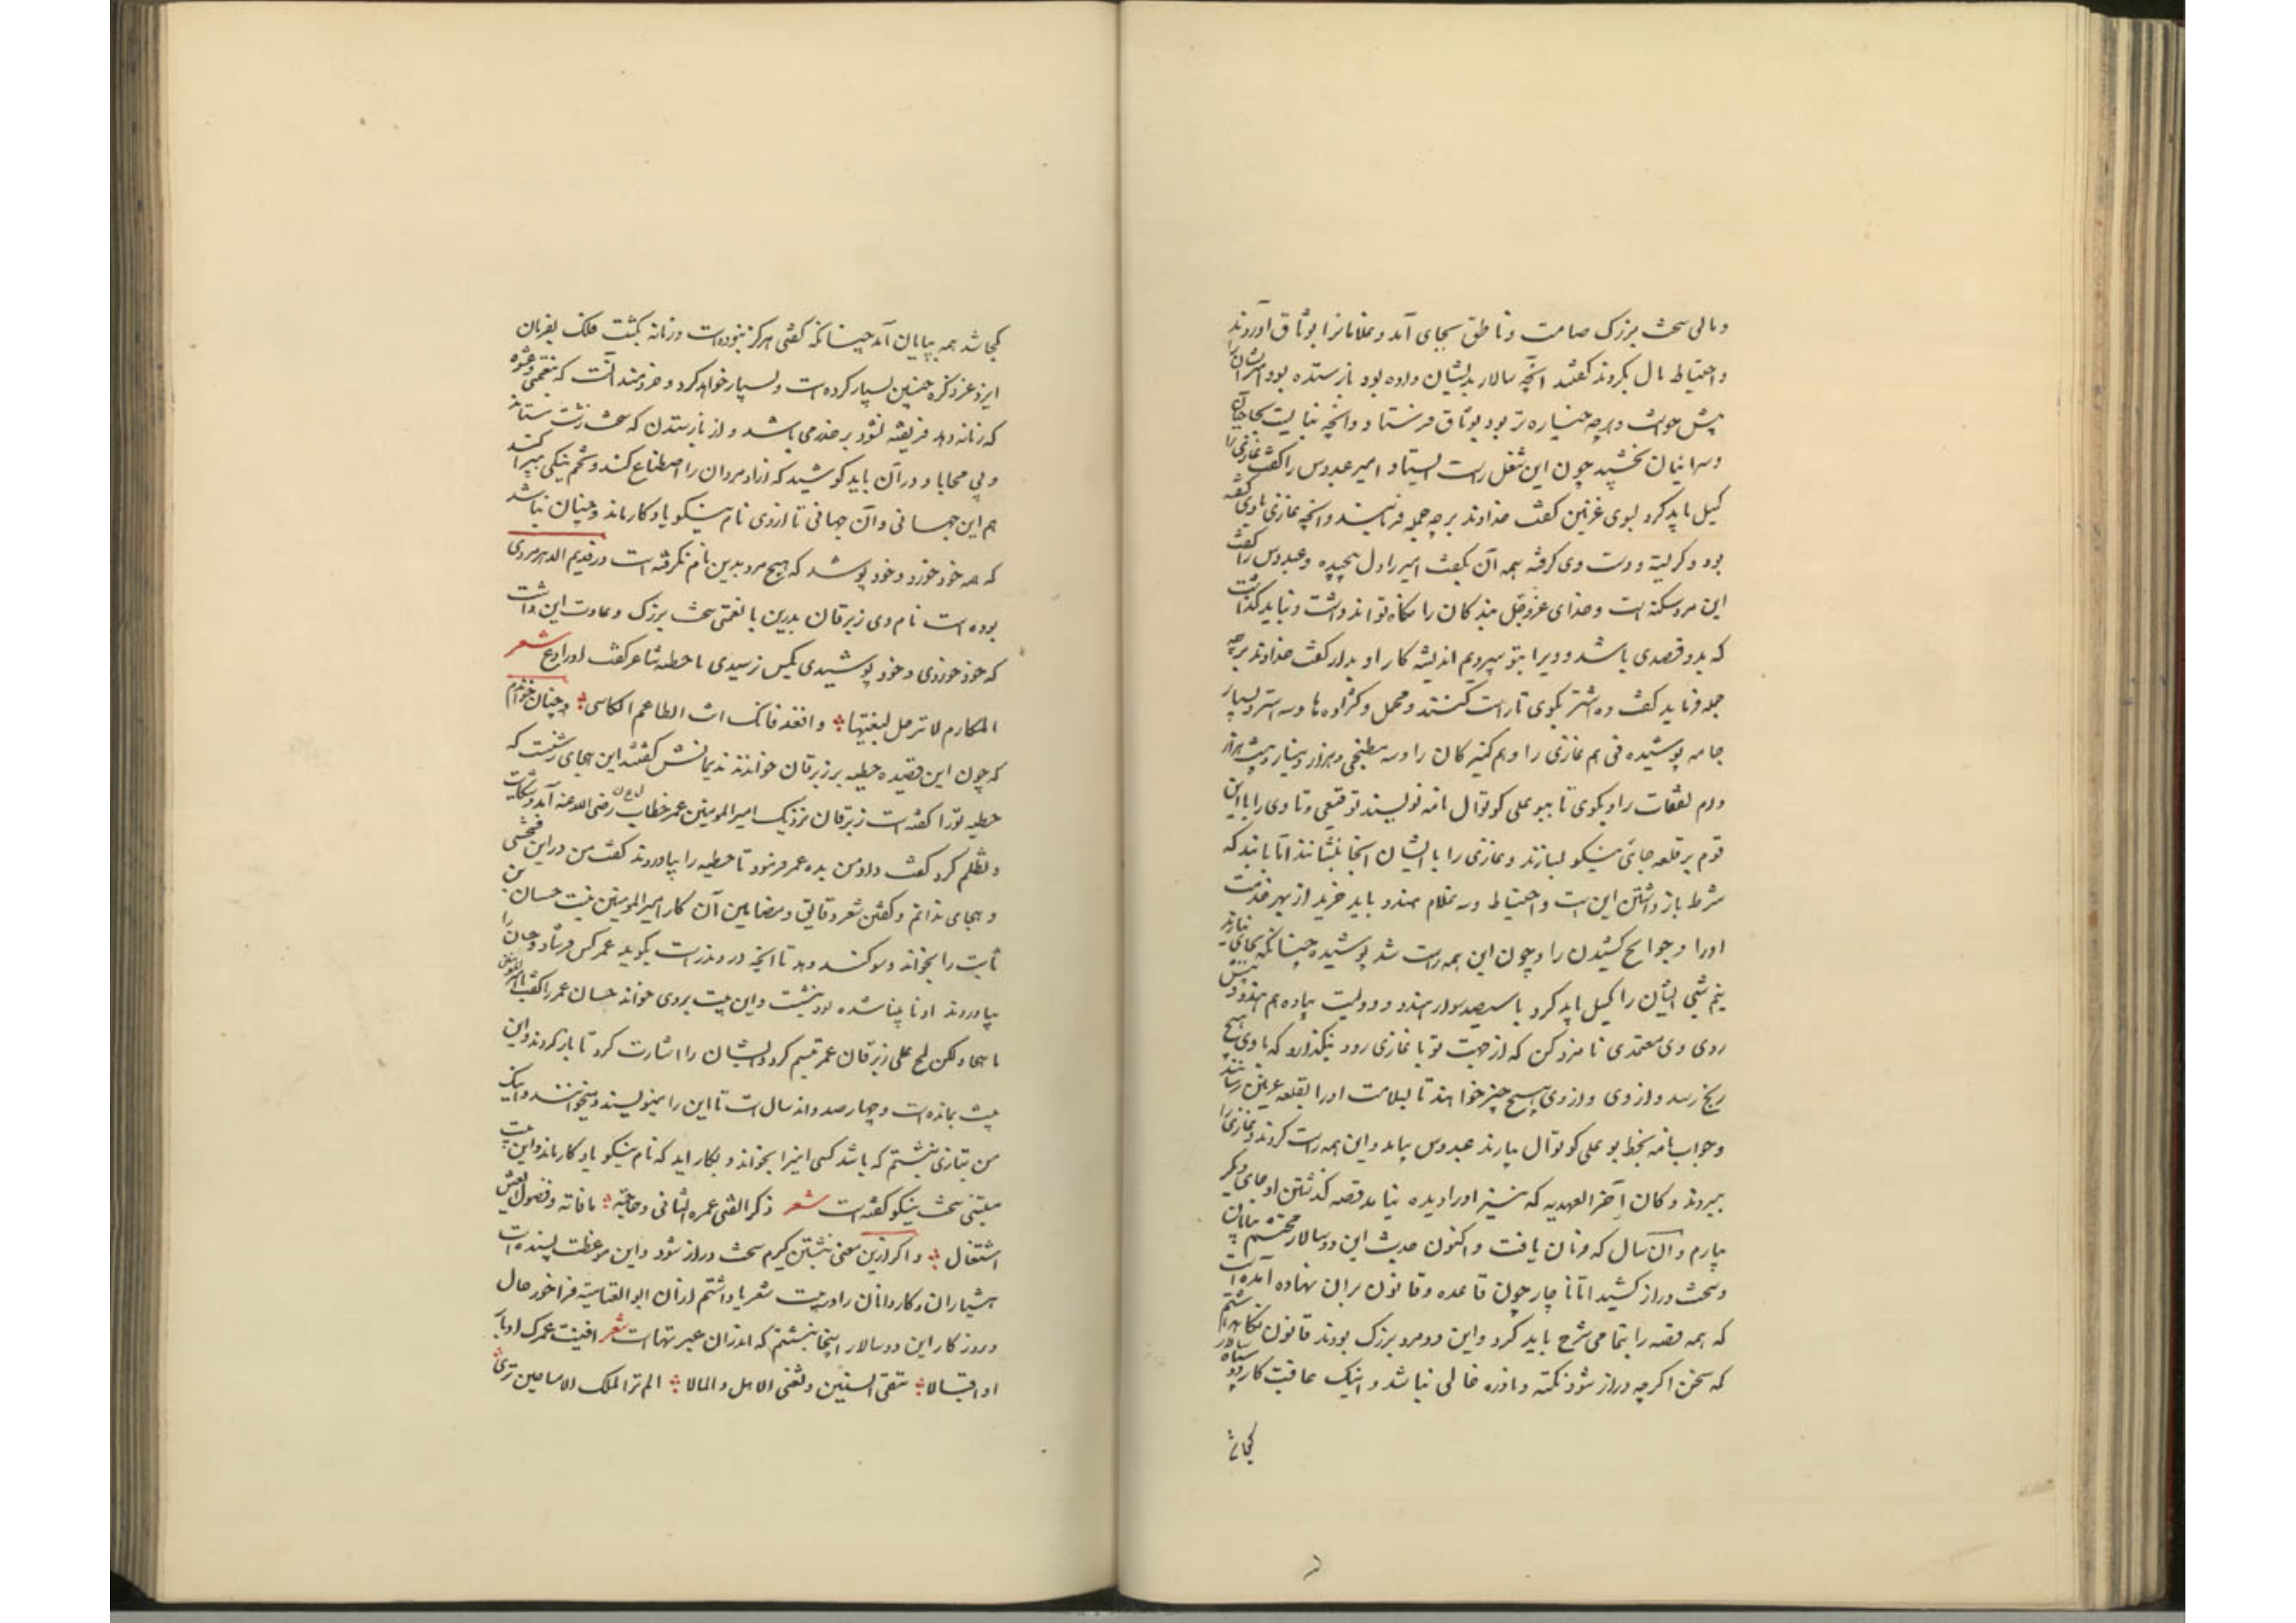 ومالی سخت بزرگ صامت و ناطق بجای آمد و غلامانرا بوثاق آوردند
و احتیاط مال بکردند گفتند آنچه سالار بدیشان داده بود باز ستده بود امیر ایشانرا
پیش خواست و هرچه خیاره‌تر بود بوثاق فرستاد و آنچه نبایست بحاجبان
و سرائیان بخشید چون این شغل راست ایستاد امیر عبدوس را گفت غازی را
گسیل باید کرد بسوی غزنین گفت خداوند بر چه جمله فرمایند و آنچه غازی باوی گفته
بود و گریسته و دست وی گرفته همه آن بگفت امیر را دل بپیچید و عبدوس را گفت
این مرد بیگنه است و خدای عزوجل بندگان را نگاه تواند داشت و نباید گذاشت
که بدو قصدی باشد و ویرا بتو سپردیم اندیشه کار او بدار گفت خداوند بر چه
جمله فرماید گفت ده اشتر بگوی تا راست کنند و محمل و کژاوه‌ها و سه استر و بسیار
جامه پوشیدنی هم غازی را و هم کنیزکان را و سه مطبخی و هزار دینار و بیست هزار
درم نفقات را و بگوی تا ببوعلی کوتوال نامه نویسند توقیعی تا وی را با این
قوم بر قلعه جای نیکو بسازند و غازی را با ایشان آنجا بنشانند اما با بند که
شرط باز داشتن این است و احتیاط و سه غلام هندو باید خرید از بهر خدمت
او را و حوایج کشیدن را و چون این همه راست شد پوشیده چنانکه بجای نیارند
نیم شبی ایشان را گسیل باید کرد با سیصد سوار هندو و دویست پیاده هم هندو پیش
روی وی معتمدی نامزد کن که از جهت تو با غازی رود و نگذارد که با وی هیچ
رنج رسد و از وی هیچ چیز خواهند تا بسلامت او را بقلعه غزنین رسانند
و جواب نامه بخط بوعلی کوتوال بیارند عبدوس بیامد و این همه راست کردند و غازی را
ببردند و کان آخر العهد به که نیز او را دیده نیامد قصه گذشتن او جای دیگر
بیارم و آن سال که فرمان یافت و اکنون حدیث این دو سالار محتشم بپایان
و سخت دراز کشید اما ناچار چون قاعده و قانون بران نهاده آمده است
که همه قصه را بتمامی شرح باید کرد و این دو مرد بزرگ بودند قانون نگاه داشتم
که سخن اگرچه دراز شود از نکته و نادره خالی نباشد و اینک عاقبت کار دو سپاه سالار
کجا شد
کجا شد همه بپایان آمد چنانکه گفتی هرگز نبوده است و زمانه بگشت فلک بفرمان
ایزد عز ذکره چنین بسیار کرده است و بسیار خواهد کرد و خردمند آنست که بنعمتی و عشوه
که زمانه دهد فریفته نشود بر حذر می باشد و از باز ستدن که سخت زشت ستاند
و بی محابا و در آن باید کوشید که آزاد مردان را اصطناع کند و تخم نیکی بپراکند
هم این جهانی و آن جهانی تا از وی نام نیکو یادگار ماند و چنان نباشد
که همه خود خورد و خود پوشد که هیچ مرد بدین نام نگرفته است در قدیم الدهر مردی
بوده است نام وی زبرقان بدر بن با نعمتی سخت بزرگ و عادت این داشت
که خود خوردی و خود پوشیدی بکس نرسیدی تا حطیه شاعر گفت او را دع شعر
المکارم لا ترحل لبغیتها ؞ واقعد فانک انت الطاعم الکاسی ؞ و چنان خواندم
که چون این قصیده حطیه بر زبرقان خواندند ندیمانش گفتند این هجای زشتست که
حطیه ترا گفته است زبرقان نزدیک امیر المومنین عمر خطاب رضی الله عنه آمد و شکایت
و تظلم کرد گفت داد من بده عمر فرمود تا حطیه را بیاوردند گفت من در این فحشی
و هجای ندانم و گفتن شعر و دقایق و مضایق آن کار امیر المومنین نیست حسان بن
ثابت را بخواند و سوگند دهد تا آنچه درو درست بگوید عمر کس فرستاد و حسان را
بیاوردند او نابینا شده بود بنشست و این بیت بروی خواند حسان عمر را گفت یا امیر المومنین
ما هجا ولکن سلح علی زبرقان عمر تبسم کرد و ایشان را اشارت کرد تا باز گردند و این
بیت بمانده است و چهار صد و اند سال است تا این را مینویسند و میخوانند و اینک
من بتازی نبشتم که باشد کسی اینرا بخواند و بکار اید که نام نیکو یادگار ماند و این بیت
متنبی سخت نیکو گفته است شعر ذکر الفتی عمره الثانی وحاجته ؞ ما فاته وفضول العیش
اشتغال ؞ و اگر ازین معنی نبشتن گیرم سخت دراز شود و این موعظت بسنده است
هشیاران و کاردانان را و بیت شعر یاد داشتم از آن ابو العتاهیه فراخور حال
و روزگار این دو سالار اینجا نبشتم که اندران عبرتهاست شعر افنیت عمرک ادبارا
او اقبالا ؞ تبغی البنین و تبغی الاهل والمالا ؞ الم تر الملک الامسی حین تری